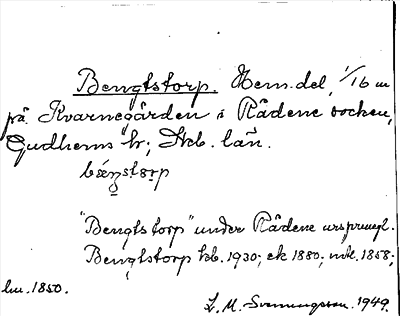 Bengtstorp. Hem.del, 1/16 m
på Kvarnegården i Rådene socken,
Gudhems hr; Skb. län.
"Bengtstorp" under Rådene ursprungl.
Bengtstorp kb. 1930; ek 1880; mtl. 1858;
hu. 1850.
L. M. Svenungsson. 1949.